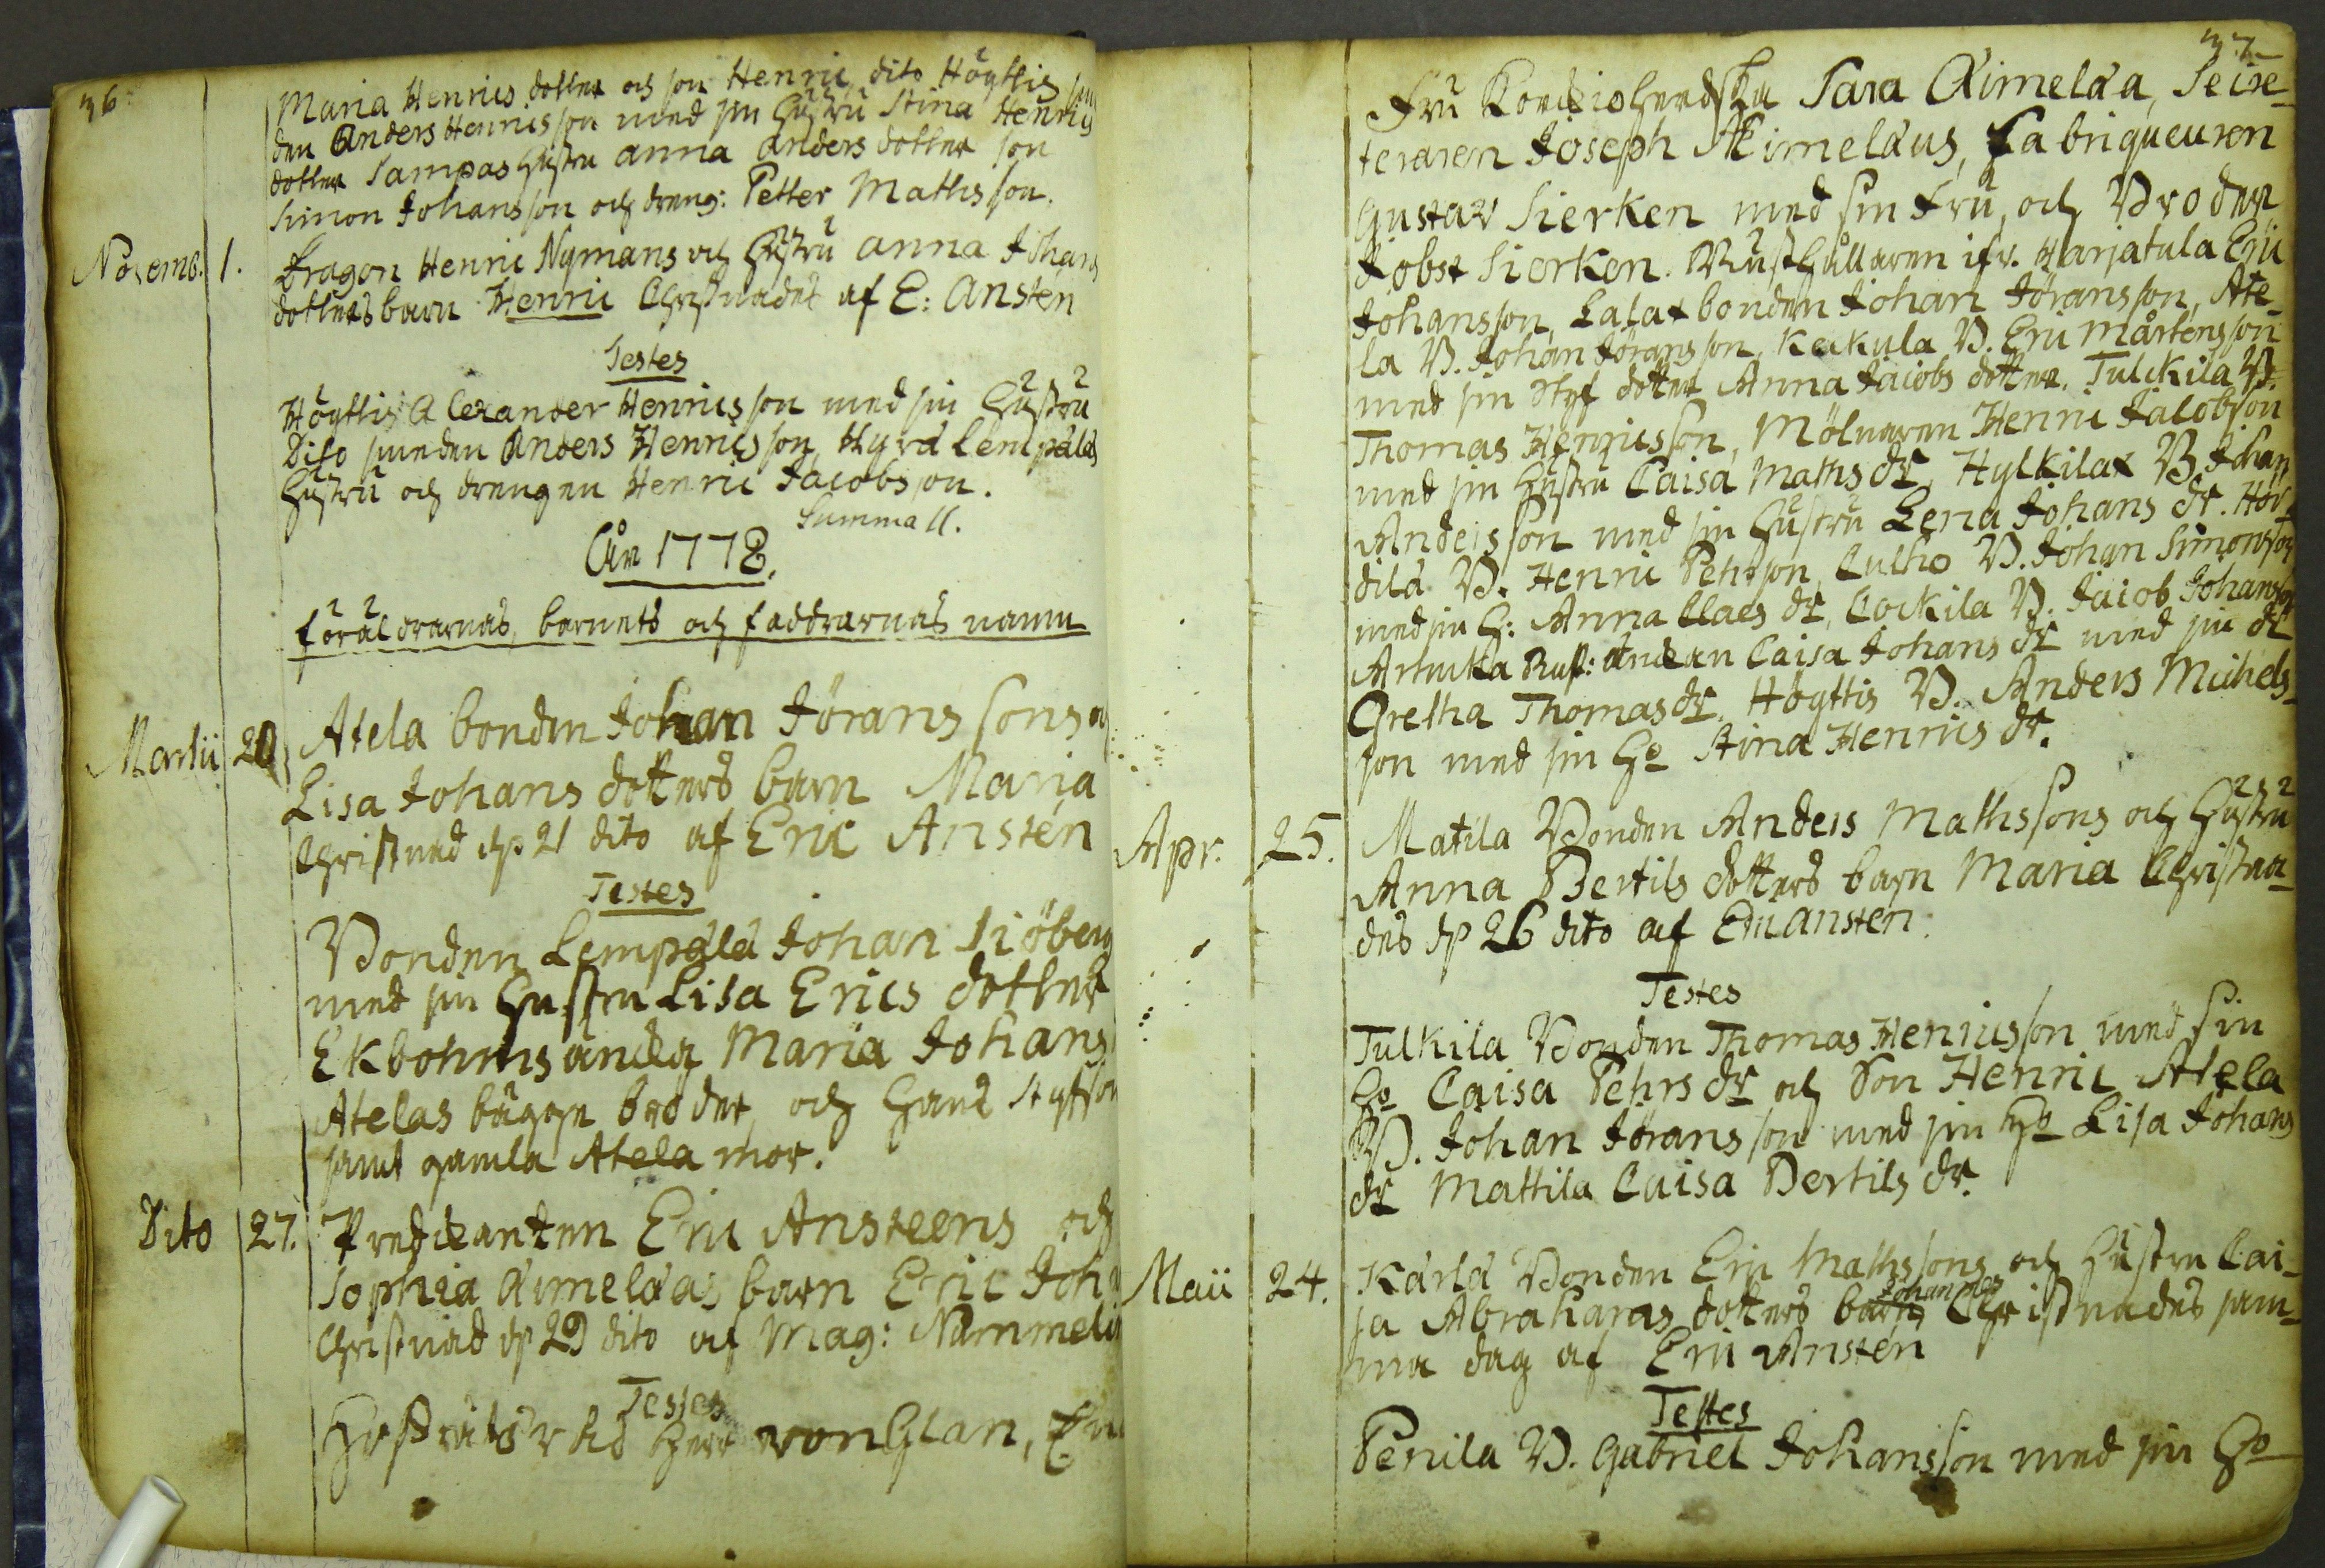 36.
Maria Henrics dotter och son Henric dito Höyttis sme
den Anders Henricsson med sin Hustru Stina Henrics
dotter Sampas Hustru Anna Anders dotter son
Simon Johansson och dreng: Petter Mathsson.
Novemb. 1. Dragon Henric Nymans och Hustru Anna Johans
dotters barn Henric Christnades af E: Ansten
Testes
Höyttis Alexander Henricsson med sin Hustru
Dito smeden Anders Henricsson, Hyrd Lempälds
Hustru och drengen Henric Jacobsson.
Summa 11.
Åhr 1778.
föräldrarnas, barnets och faddrarnas namn
Martii 20 Atela bonden Johan Jöranssons och
Lisa Johans dotters barn Maria
Christnad d. 21 dito af Eric Anstén
Testes
Bonden Lempälä Johan Siöberg
med sin Hustru Lisa Erics dotter
Ekbohms änckа Maria Johans
Atelas bägge bröder, och Hans styfson
samt gamla Atela mor.
Dito 27. Predikanten Eric Ansteens och
Sophia Aimelæas barn Eric Joh
Christnad d. 29 dito af Mag: Nammeli
Testes
Herr von Glan,
37.
Fru Sara Aimelæa, Secre-
teraren Joseph Aimelæus, Fabriqueuren
Gustav Sierken med sin Fru, och Broder
Jobst Sierken. Rusthållaren ifr. Harjatula Eric
Johansson, Lalax bonden Johan Jöransson, Ate-
la B. Johan Jöransson, Kakula B. Eric Mårtensson
med sin Styf dotter Anna Jacobs dotter. Tulckila B.
Thomas Henricsson, Mölnaren Henric Jacobsson
med sin Hustru Caisa Maths dr, Hylkilax B. Johan
Andersson med sin Hustru Lena Johans dr. Hör-
dilä B. Henric Pehrson, Culho B. Johan Simonsson
med sin H: Anna Claes dr, Cockila B. Jacob Johansson
Artucka Rust: änckan Caisa Johans dr med sin dr
Gretha Thomas dr. Höyttis B. Anders Michels-
son med sin Ho Stina Henrics dr.
Apr. 25. Matila Bonden Anders Mathssons och Hustru
Anna Bertils dotters barn Maria Christna-
des d. 26 dito af Eric Ansten.
Testes
Tulkila Bonden Thomas Henricsson med sin
Ho Caisa Pehrs dr och Son Henric Atela
B. Johan Jöransson med sin Ho Lisa Johans
dr Mattila Caisa Bertils dr.
Maii 24. Kärlä Bonden Eric Mathssons och Hustru Cai-
sa Abrahams dotters barn Johannes Christnades sam-
ma dag af Eric Anstén
Testes
Penila B. Gabriel Johansson med sin Ho